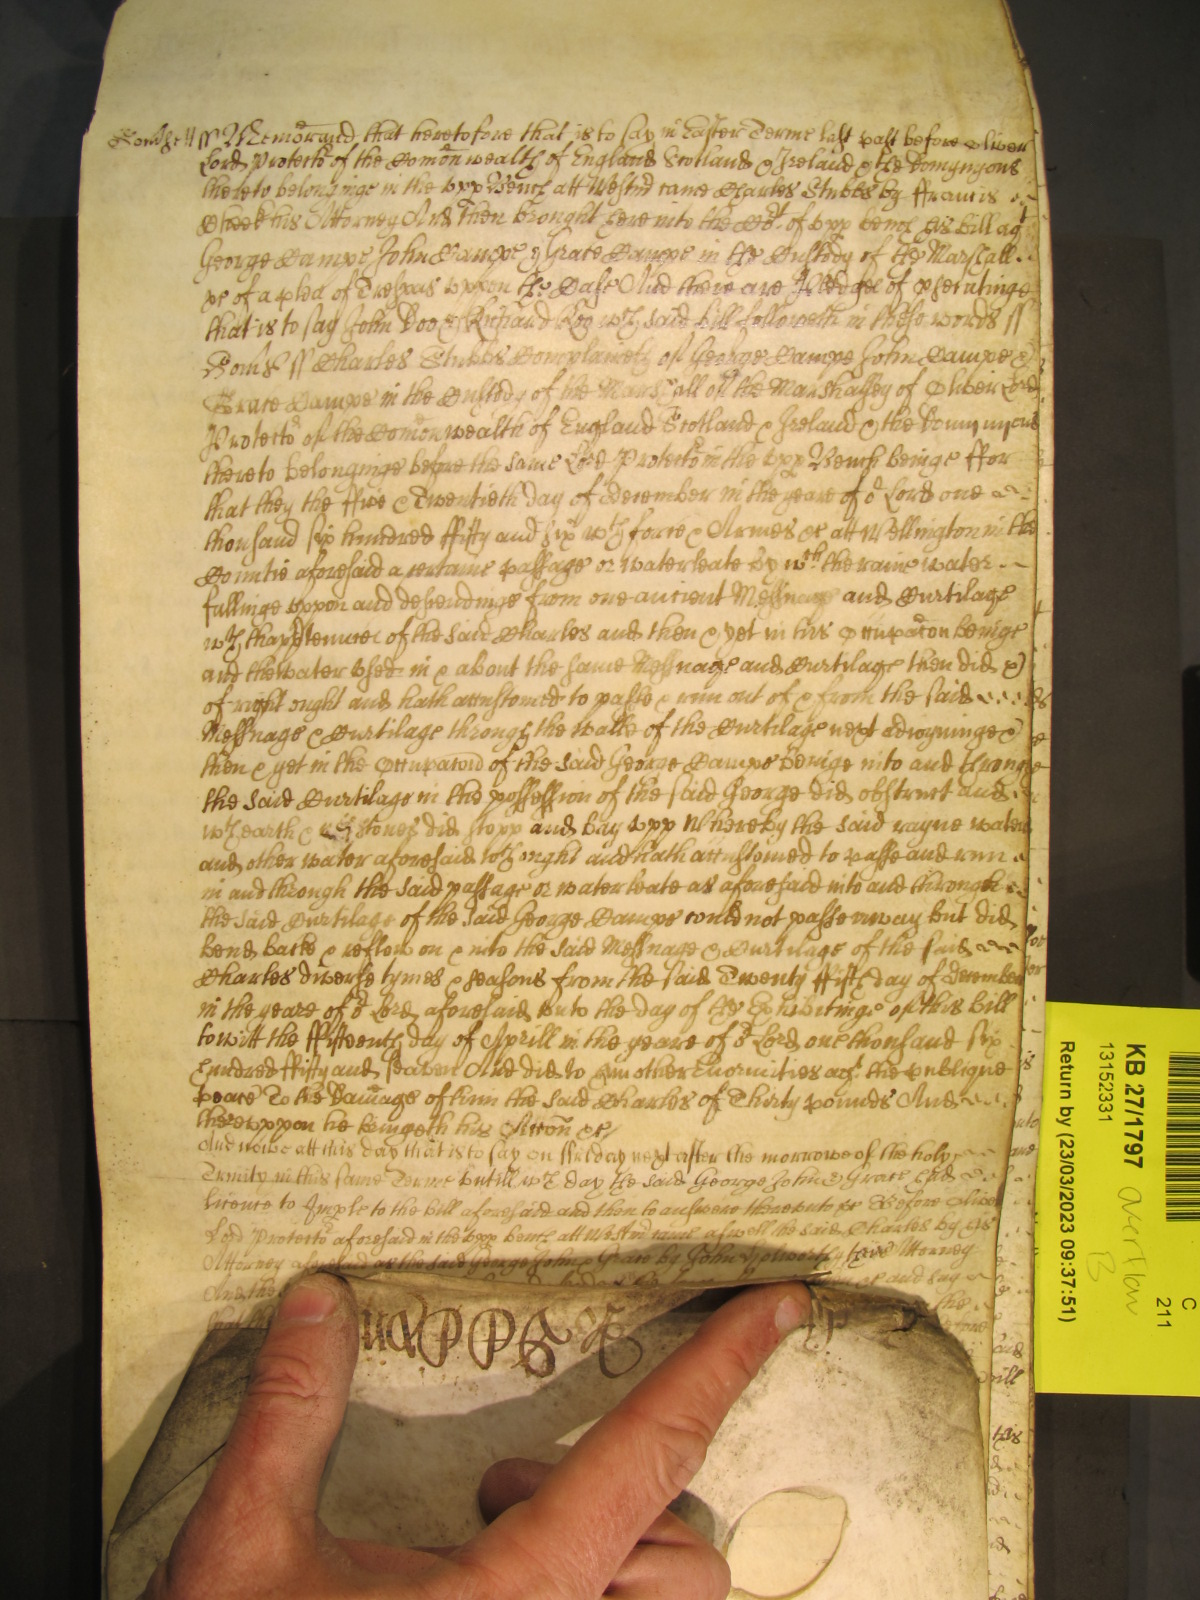 Memorand that heretofore that is to say in Easter Terme last past before Oliver
Lord Protector of the Comonwealth of England Scotland & Ireland & the Dominyons
thereto belonginge in the upp Bench att Westmr came Charles Stubbs by ffrancis
his Attorney And then brought here into the Cort of upp bench his bill agt
George Campe John Campe & Grace Campe in the Custody of the Marshall
&c of a plea of Trespas uppon the Case And there are pledges of prosecutinge
that is to say John Doo & Richard Roo wch said bill followeth in these words ss
ss Charles Stubbs Complaineth of George Campe John Campe &
Grace Campe in the Custody of the Marshall of the Marshalsey of Oliver Lord
Protector of the Comonwealth of England Scotland & Ireland & the Dominyons
thereto belonginge before the same Lord Protector in the upp Bench beinge ffor
that they the ffive & Twentieth day of December in the yeare of or Lord one
thousand six hundred ffifty and six wth force & Armes &c att Wellington in the
Countie aforesaid a certaine passage or waterleate by wch the raine water
fallinge uppon and descendinge from one ancient Messuage and Curtilage
wth thappurtenncs of the said Charles and then & yet in his Occupacon beinge
and the water used in & about the same Messuage and Curtilage then did &
of right ought and hath accustomed to passe & run out of & from the said
Messuage & Curtilage through the walle of the Curtilage next adioyninge &
then & yet in the Occupacon of the said George Campe beinge into and through
the said Curtilage in the possession of the said George did obstruct and
wth earth & stones did stopp and bay upp Whereby the said rayne water
and other water aforesaid wch ought and hath accustomed to passe and run
in and through the said passage or waterleate as aforesaid into and through
the said Curtilage of the said George Campe could not passe away but did
bend backe & reflow on & into the said Messuage & Curtilage of the said
Charles diverse tymes & seasons from the said Twenty ffift day of December
in the yeare of or Lord aforesaid unto the day of the Exhibitinge of this Bill
towitt the ffifteenth day of Aprill in the yeare of or Lord one thousand six
hundred ffifty and seaven And did to him other Enormities agt the publique
peace To the Damage of him the said Charles of Thirty pounds And
thereuppon he bringeth his Accon &c
And nowe att this day that is to say on ffriday next after the morrowe of the holy
Trinity in this same Terme untill wch day the said George John & Grace had
licence to Imple to the bill aforesaid and then to answere thereunto &c Before Oliver
Lord Protector aforesaid in the upp bench att Westmr came aswell the said Charles by his
Attorney aforesaid as the said George John & Grace by John their Attorney
And the and say
KB 27/1797 overflow
B
13152331
Return by (23/03/2023 09:37:51)
C
211